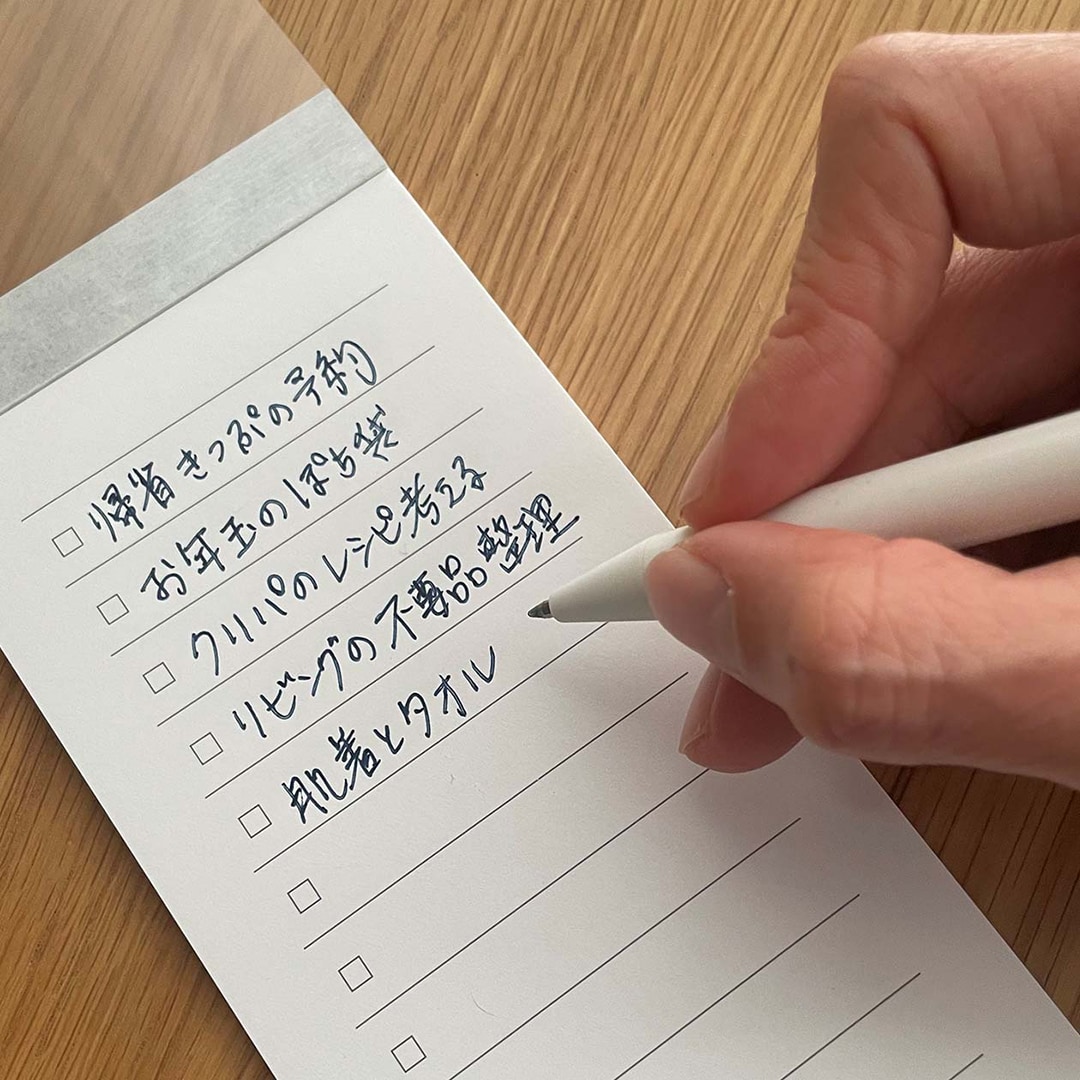 帰省きっぷの予約
お年玉のぽち袋
クリパのレシピ考える
リビングの不要品整理
肌着とタオル